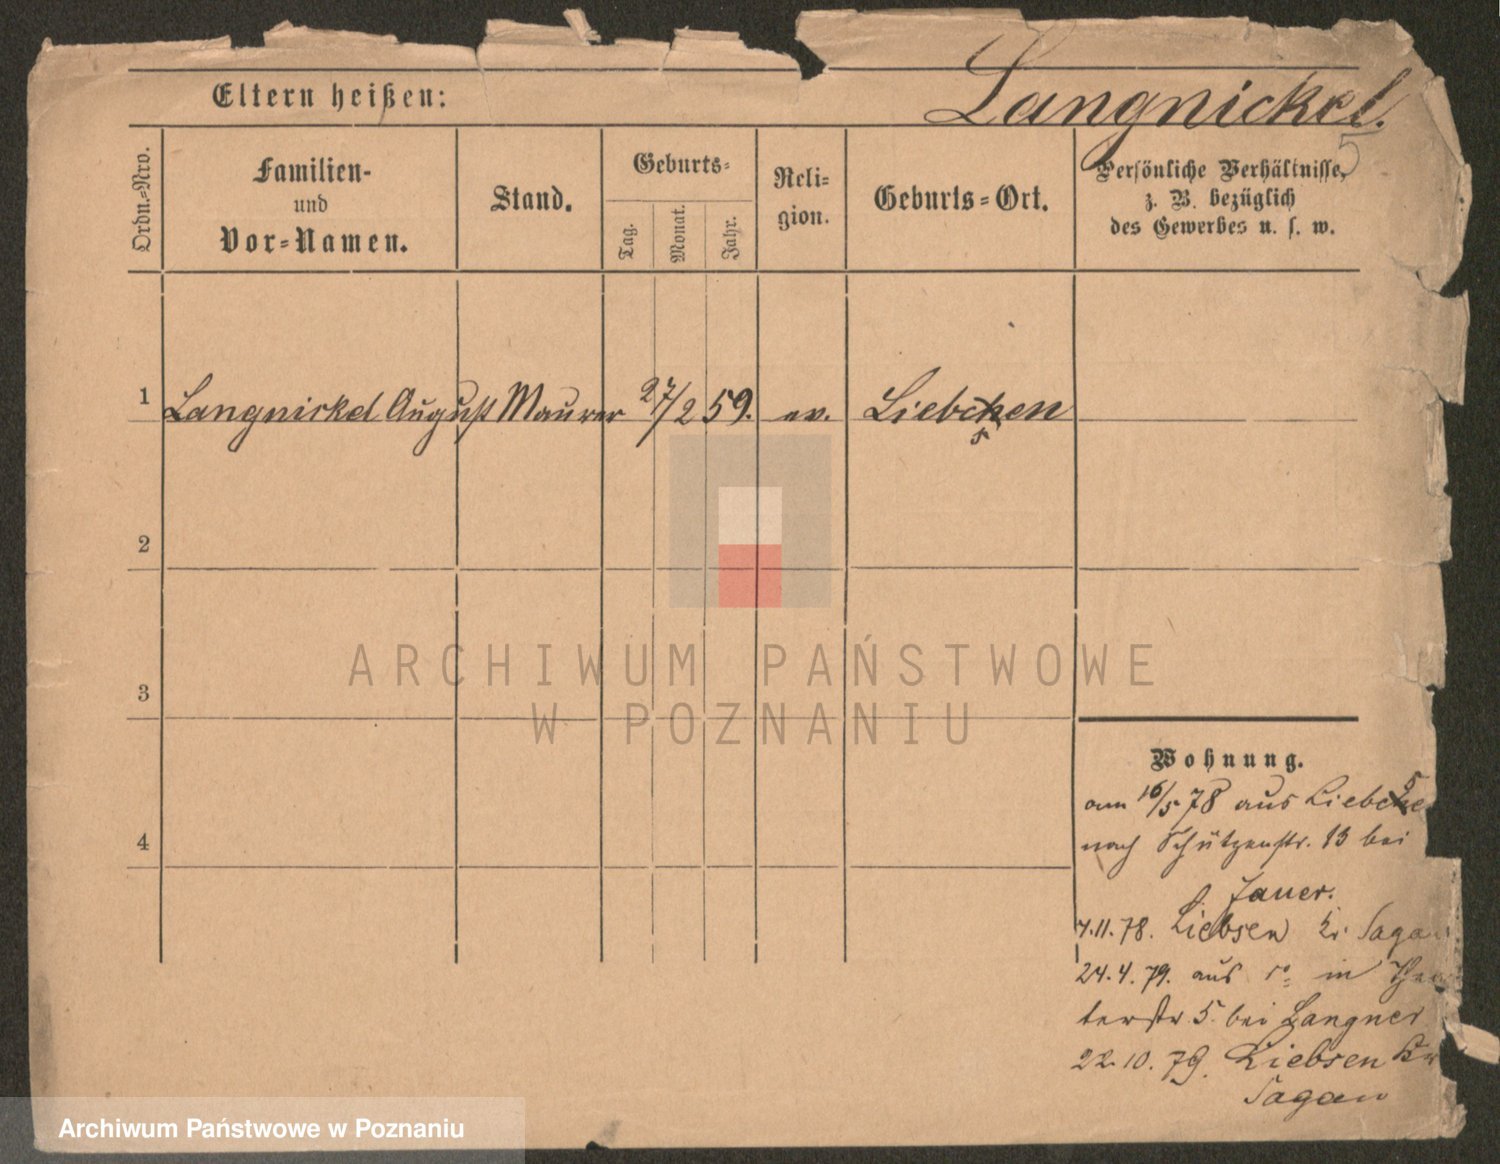 Eltern heißen:
Langnickel.
5
Ordn.-Nro.
Familien-
und
Vor-Namen.
Stand.
Geburts-
Tag.
Monat.
Jahr.
Reli-
gion.
Geburts-Ort.
Persönliche Verhältnisse,
z. B. bezüglich
des Gewerbes u. s. w.
1 Langnickel August Maurer 27/2 59. ev. Liebcken
s
2
3
4
ARCHIWUM PAŃSTWOWE
W POZNANIU
Wohnung.
am 16/5 78 aus
nach Schützenstr. 13 bei
Jauer.
7.11.78. Liebsen Kr. Sagan
24.4.79. aus in Thea
terstr. 5. bei Langner
22.10.79. Liebsen Kr
Sagan
Archiwum Państwowe w Poznaniu